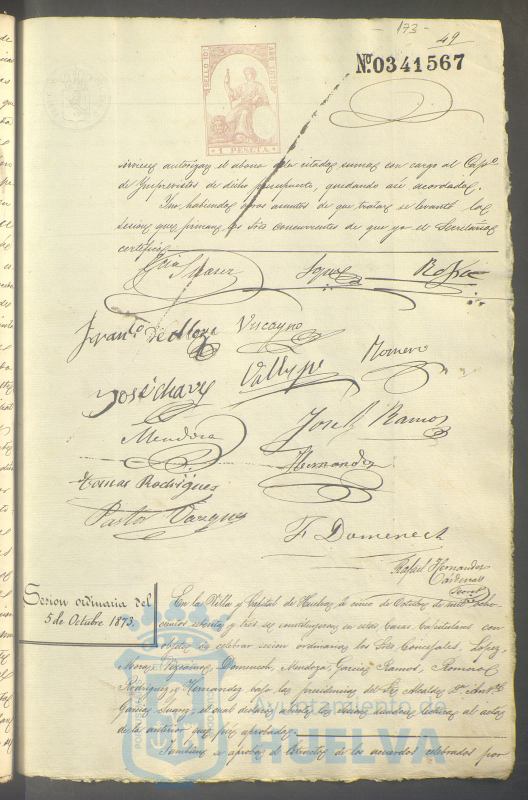 173
49
Nº 0341567
SELLO 10º
AÑO 1873
1 PESETA
autorizar el abono de la citada suma con cargo al Capº
de Imprevistos de dicho presupuesto, quedando así acordado.
Y no habiendo otros asuntos de que tratar se levantó la
sesion que firman los Sres concurrentes de que yo el Secretario
certifico
García Suarez
Lopez
Franco de Moya
Vizcayno
Romero
José Chavz
Mendoza
José R Ramos
Hernandez
Tomas Rodriguez
Pastor Vazquez
F Domenech
Rafael Hernandez
Cardenal
Secreto
Sesion ordinaria del
5 de Octubre 1873.
En la Villa y Capital de Huelva a cinco de Octubre de mil ocho
cientos setenta y tres se constituyeron en estas Casas Capitulares con
objeto de celebrar sesion ordinaria los Sres Concejales, Lopez,
Mora, Vizcaino, Domenech, Mendoza, Garcia Ramos, Romero,
Rodriguez y Hernandez bajo la presidencia del Sr Alcalde Dn Antº
Garcia Suarez, el cual declaró abierta la sesion dandose lectura al acta
de la anterior que fué aprobada.
Tambien se aprobó el estracto de los acuerdos celebrados por
Ayuntamiento de
HUELVA